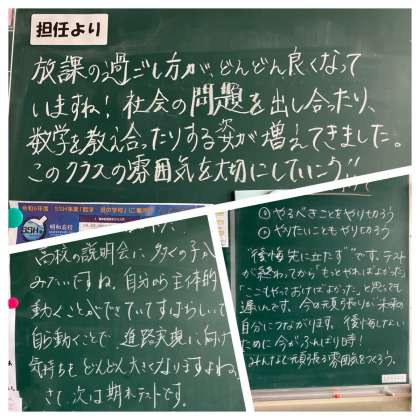 担任より
放課の過ごし方が、どんどん良くなって
いますね！社会の問題を出し合ったり、
数学を教え合ったりする姿が増えてきました。
このクラスの雰囲気を大切にしていこう!!
令和6年度
SSH
明和高校
高校の説明会に多くの子が
みたいですね。自分から主体的
動くことができていてすばらしい
自ら動くことで進路実現に向け
気持ちもどんどん大きくなりますよね。
さて、次は期末テストです。
①やるべきことをやり切ろう
②やりたいこともやり切ろう
"後悔先に立たず"です。テスト
が終わってから「もっとやればよかった」
「ここもやっておけばよかった」と思っても
遅いんです。今の頑張りが未来の
自分につながります。後悔しない
ために今がふんばり時！
みんなで頑張る雰囲気をつくろう。